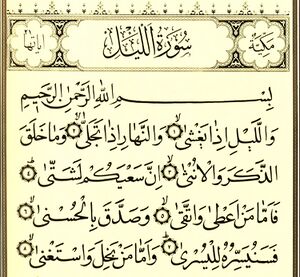 مكية سورة الليل آياتها
بِسْمِ اللَّهِ الرَّحْمَٰنِ الرَّحِيمِ
وَاللَّيْلِ إِذَا يَغْشَىٰ ۝ وَالنَّهَارِ إِذَا تَجَلَّىٰ ۝ وَمَا خَلَقَ
الذَّكَرَ وَالْأُنْثَىٰ ۝ إِنَّ سَعْيَكُمْ لَشَتَّىٰ ۝
فَأَمَّا مَنْ أَعْطَىٰ وَاتَّقَىٰ ۝ وَصَدَّقَ بِالْحُسْنَىٰ ۝
فَسَنُيَسِّرُهُ لِلْيُسْرَىٰ ۝ وَأَمَّا مَنْ بَخِلَ وَاسْتَغْنَىٰ ۝